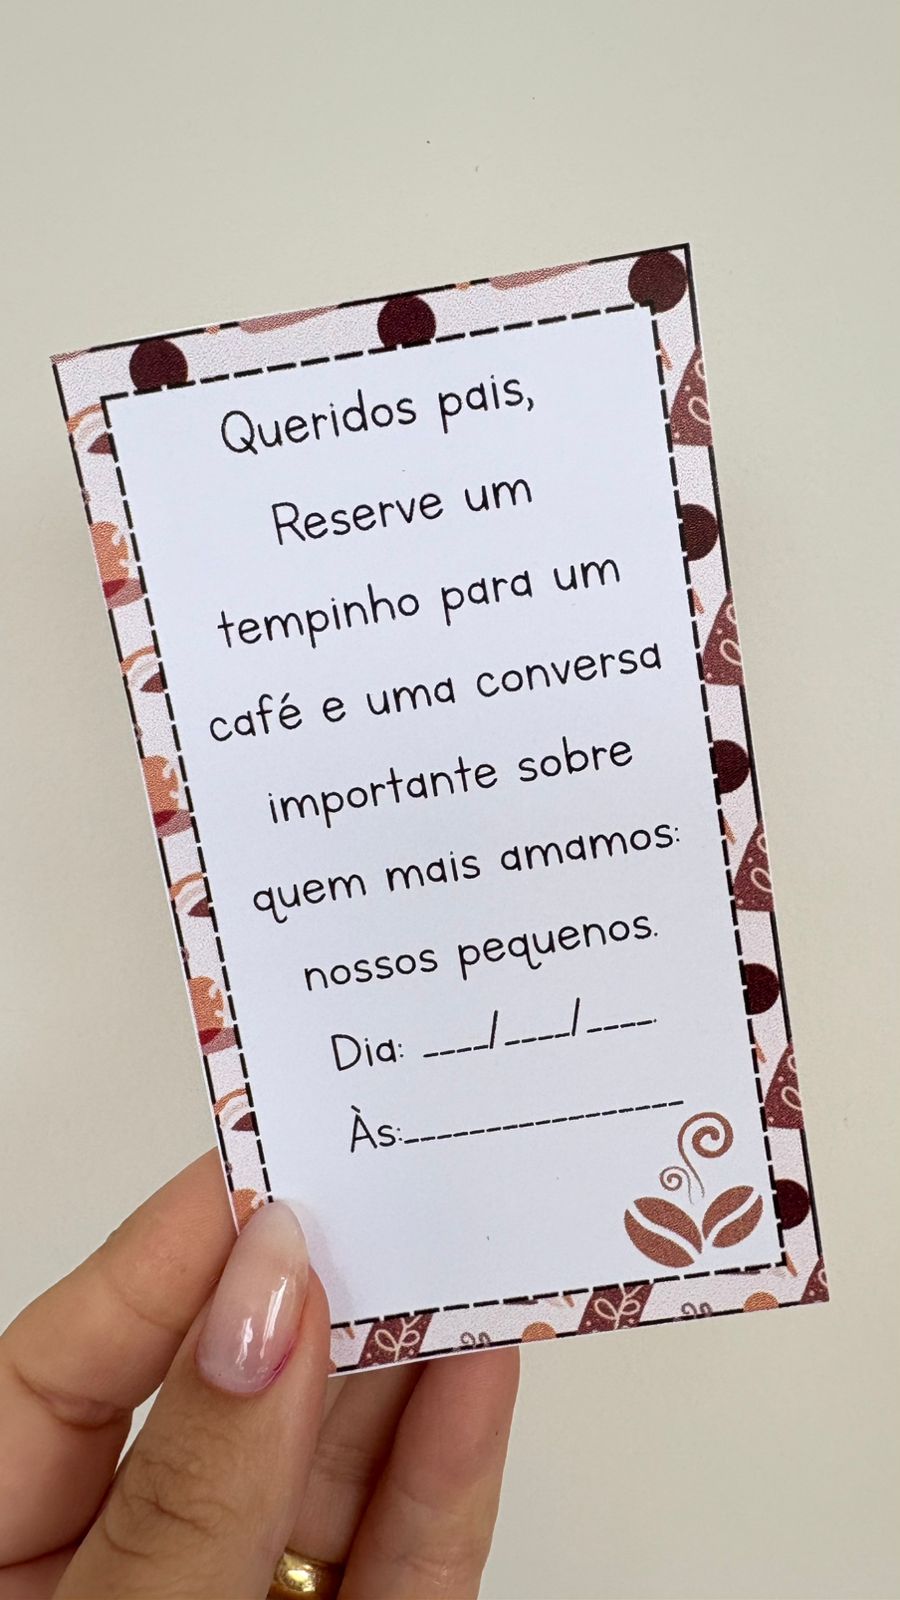 Queridos pais,
Reserve um
tempinho para um
café e uma conversa
importante sobre
quem mais amamos:
nossos pequenos.
Dia: ____/____/____.
Às:________________